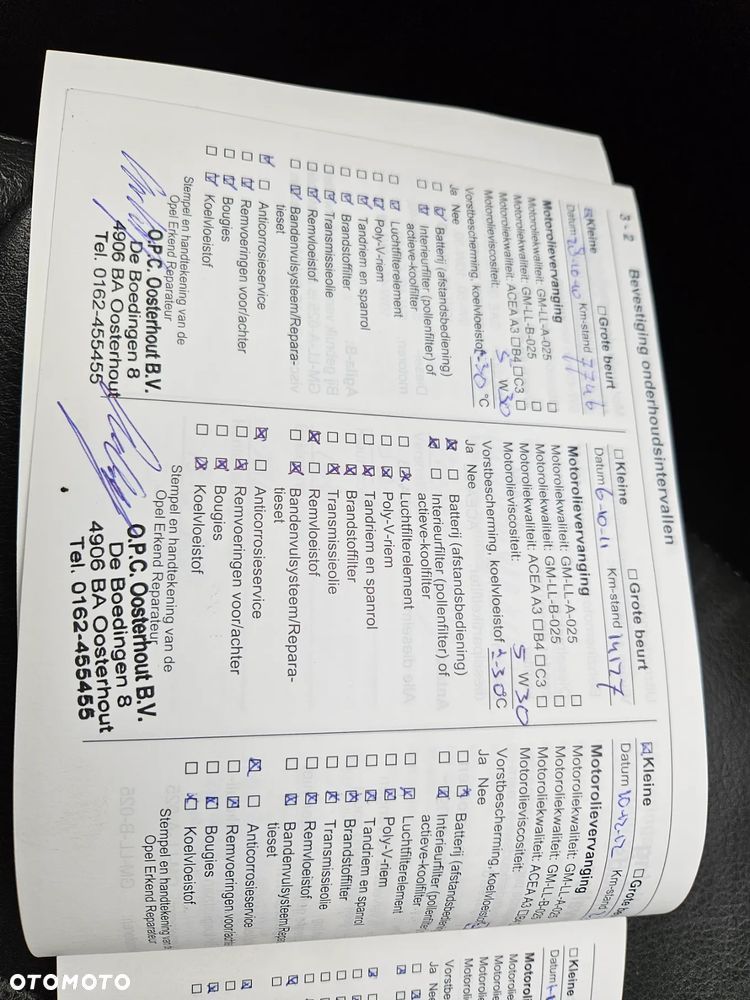 3 - 2 Bevestiging onderhoudsintervallen
Kleine Grote beurt
Datum 28-10-10 Km-stand 7746
Motorolievervanging
Motoroliekwaliteit: GM-LL-A-025
Motoroliekwaliteit: GM-LL-B-025
Motoroliekwaliteit: ACEA A3 B4 C3
Motorolieviscositeit: 5 W 30
Vorstbescherming, koelvloeistof -30 °C
Ja Nee
Batterij (afstandsbediening)
Interieurfilter (pollenfilter) of
actieve-koolfilter
Luchtfilterelement
Poly-V-riem
Tandriem en spanrol
Brandstoffilter
Transmissieolie
Remvloeistof
Bandenvulsysteem/Repara-
tieset
Anticorrosieservice
Remvoeringen voor/achter
Bougies
Koelvloeistof
Stempel en handtekening van de
Opel Erkend Reparateur
O.P.C. Oosterhout B.V.
De Boedingen 8
4906 BA Oosterhout
Tel. 0162-455455
Kleine Grote beurt
Datum 6-10-11 Km-stand 14177
Motorolievervanging
Motoroliekwaliteit: GM-LL-A-025
Motoroliekwaliteit: GM-LL-B-025
Motoroliekwaliteit: ACEA A3 B4 C3
Motorolieviscositeit: 5 W 30
Vorstbescherming, koelvloeistof -30 °C
Ja Nee
Batterij (afstandsbediening)
Interieurfilter (pollenfilter) of
actieve-koolfilter
Luchtfilterelement
Poly-V-riem
Tandriem en spanrol
Brandstoffilter
Transmissieolie
Remvloeistof
Bandenvulsysteem/Repara-
tieset
Anticorrosieservice
Remvoeringen voor/achter
Bougies
Koelvloeistof
Stempel en handtekening van de
Opel Erkend Reparateur
O.P.C. Oosterhout B.V.
De Boedingen 8
4906 BA Oosterhout
Tel. 0162-455455
Kleine Grote
Datum 10-12-12 Km-stand
Motorolievervanging
Motoroliekwaliteit: GM-LL-A-025
Motoroliekwaliteit: GM-LL-B-025
Motoroliekwaliteit: ACEA A3
Motorolieviscositeit:
Vorstbescherming, koelvloeistof
Ja Nee
Batterij (afstandsbedie
Interieurfilter (pollenfilte
actieve-koolfilter
Luchtfilterelement
Poly-V-riem
Tandriem en spanrol
Brandstoffilter
Transmissieolie
Remvloeistof
Bandenvulsysteem/Repa
tieset
Anticorrosieservice
Remvoeringen voor/ach
Bougies
Koelvloeistof
Stempel en handtekening van
Opel Erkend Reparateur
Kleine
Datum
Motorol
Motoroli
Motoroli
Motoroli
Vorstbes
Ja Nee
OTOMOTO